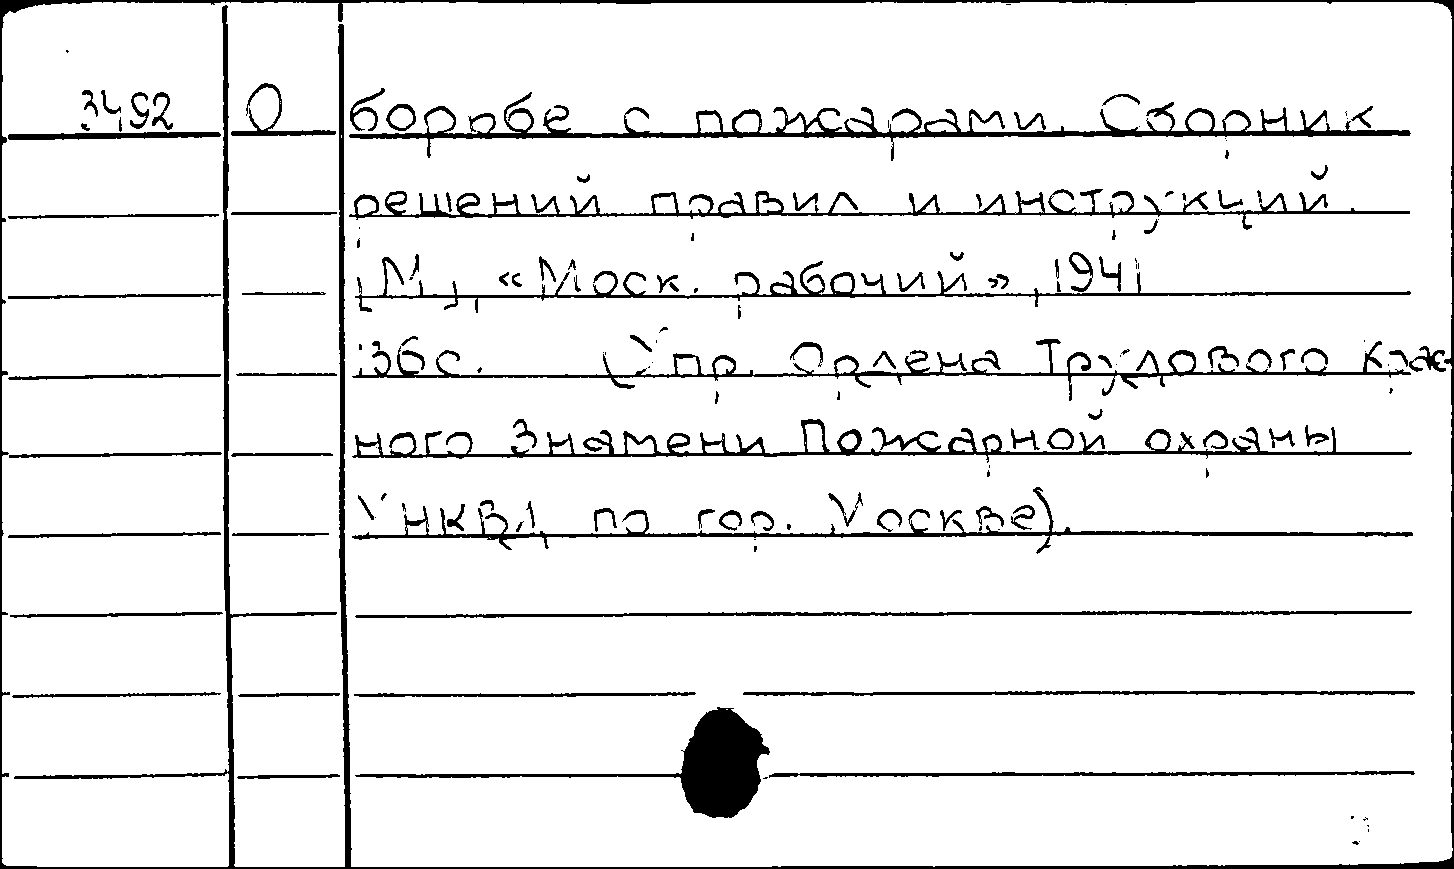 3492 О борьбе с пожарами. Сборник
решений правил и инструкций.
[М], «Моск. рабочий», 1941
36с. (Упр. Ордена Трудового Крас-
ного Знамени Пожарной охраны
УНКВД по гор. Москве).